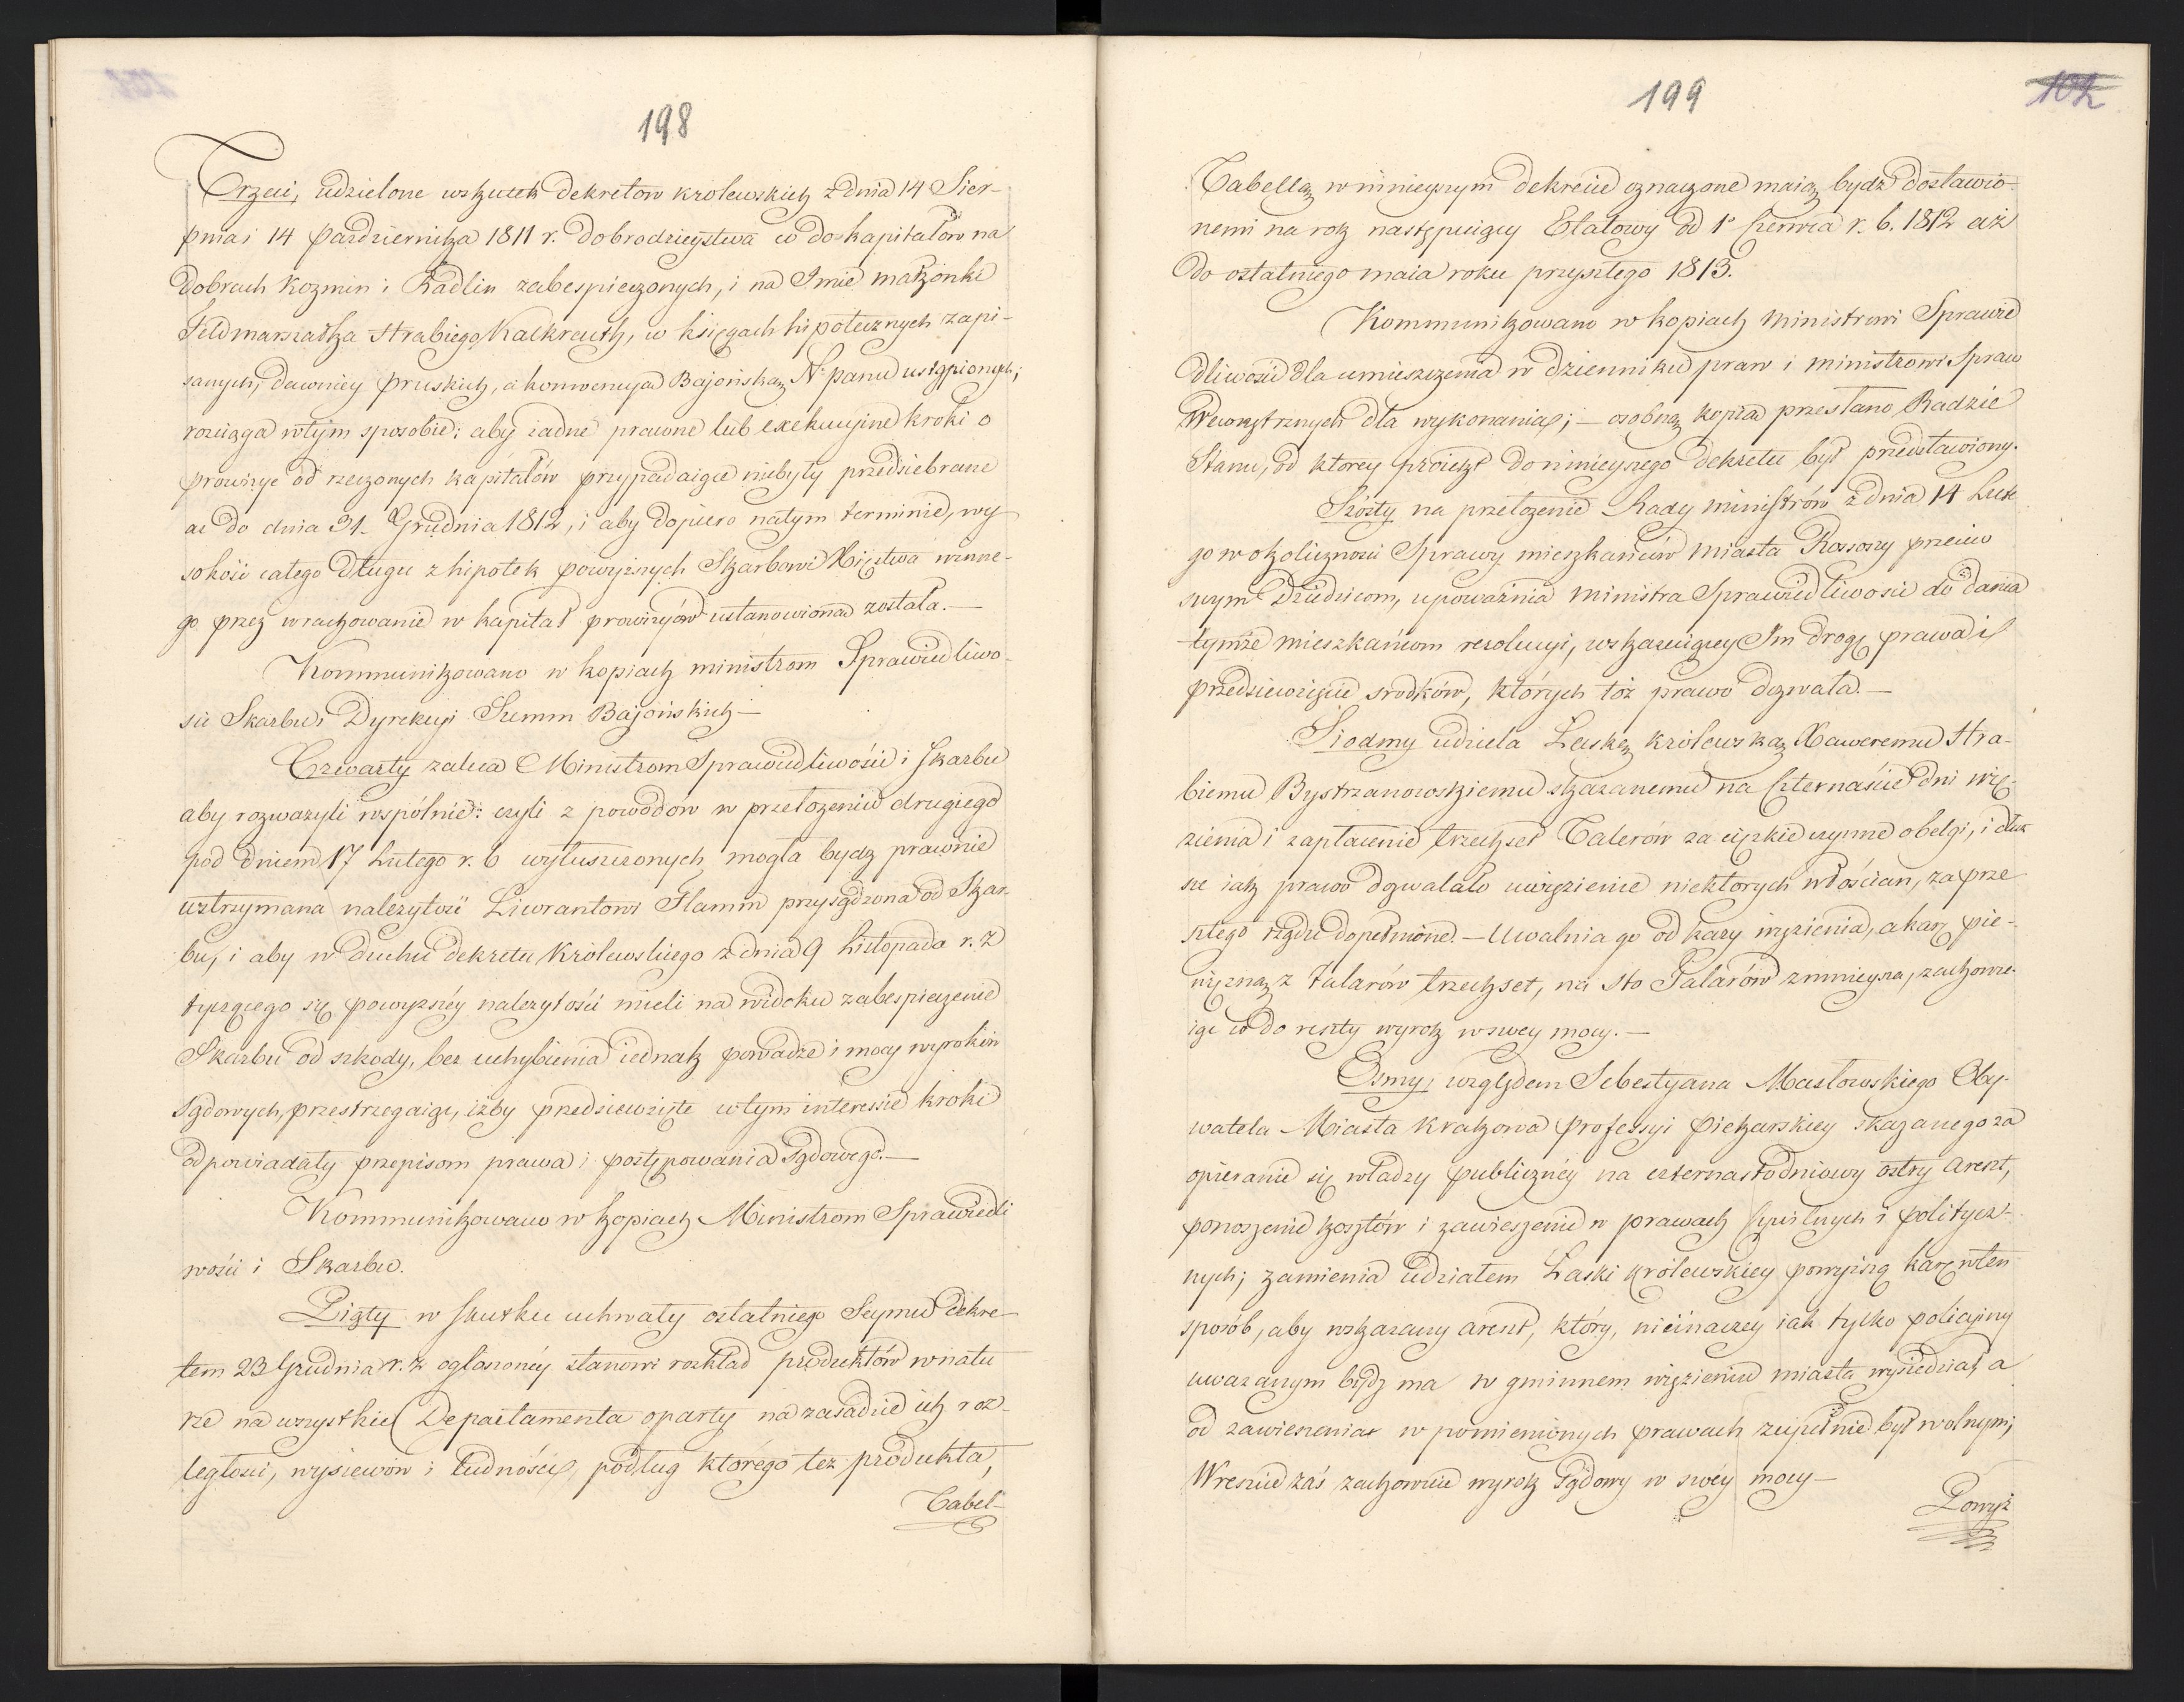 198
Trzeci, udzielone wskutek dekretow krolewskich z dnia 14 Sier-
pnia i 14 Pazdziernika 1811 r. dobrodzieystwa co do kapitałow na
dobrach Kozmin i Radlin zabespieczonych, i na Imie małżonki
Feldmarszałka Hrabiego Kalkreuth, w księgach hipotecznych zapi-
sanych, dawniey pruskich, a konwencyą Bajońską N. panu ustąpionych;
rozciąga w tym sposobie: aby żadne prawne lub exekucyine kroki o
prowizye od rzeczonych kapitałów przypadaiące niebyły przedsiebrane
aż do dnia 31. Grudnia 1812, i aby dopiero na tym terminie, wy
sokość całego długu z hipotek powyższnych Skarbowi Xięstwa winne-
go przez wrachowanie w kapitał prowizyów ustanowiona została.—
Kommunikowano w kopiach ministrom Sprawiedliwo-
ści Skarbu i Dyrekcyi Summ Bajońskich—
Czwarty zaleca Ministrom Sprawiedliwości i Skarbu
aby rozważyli wspólnie: czyli z powodów w przełożeniu drugiego
pod dniem 17 Lutego r. b wyłuszczonych mogła bydz prawnie
wstrzymana należytość Liwrantowi Flamm przysądzona od Skar
bu, i aby w duchu dekretu Królewskiego z dnia 9 Listopada r. z
tyczącego się powyzszéy należytości mieli na widoku zabespieczenie
Skarbu od szkody, bez uchybienia iednak powadze i mocy wyroków
Sądowych, przestrzegaiąc, iżby przedsiewzięte w tym interessie kroki
odpowiadały przepisom prawa i postępowania Sądowego.—
Kommunikowano w kopiach Ministrom Sprawiedli
wości i Skarbu.
Piąty w skutku uchwały ostatniego Seymu dekre
tem 23 Grudnia r. z ogłaszonéy stanowi rozkład produktów w natu
rze na wszystkie Departamenta oparty na zasadzie ich roz-
ległości, wysiewów i ludności, podług którego też produkta,
Tabel-
199
102
Tabellą w ninieyszym dekrecie oznaczone maią bydz dostawio-
nemi na rok następuiący Etatowy od 1o Czerwca r. b. 1812 aż
do ostatniego maia roku przyszłego 1813.
Kommunikowano w kopiach Ministrowi Sprawie
dliwości dla umieszczenia w dzienniku praw i ministrowi Spraw
Wewnętrznych dla wykonania; — osobną kopią przesłano Radzie
Stanu, od ktorey proiekt do ninieyszego dekretu był przedstawiony.
Szósty na przełożenie Rady Ministrów z dnia 14 Lute
go w okoliczności Sprawy mieszkańców miasta Rossoszy przeciw
swym Dziedzicom, upoważnia ministra Sprawiedliwości do dania
tymże mieszkańcom rezolucyi, wskazuiącey Im drogę prawa i
przedsiewzięcie srodków, których toż prawo dozwala.—
Siodmy udziela Łaskę królewską Xaweremu Hra-
biemu Bystrzanowskiemu skazanemu na Czternaście dni wię-
zienia i zapłacenie trzechset Talerów za cięzkie czynne obelgi, i dłuż
sze iak prawo dozwalało uwięzienie niektorych włościan, za prze
szłego rządu dopełnione.—Uwalnia go od kary więzienia, a karę pie-
niężną z talarów trzechset, na sto Talarów zmnieysza, zachowu-
iąc co do reszty wyrok w swey mocy.—
Osmy, względem Sebestyana Masłowskiego Oby-
watela Miasta Krakowa professyi piekarskiey skazanego za
opieranie się władzy publicznéy na czternastodniowy ostry areszt,
ponoszenie kosztów i zawieszenie w prawach Cywilnych i politycz-
nych; zamienia udziałem Łaski królewskiey powyższą karę w ten
sposób, aby wskazany areszt, który, nieinaczey iak tylko policyjny
uważanym bydz ma w gminnem więzieniu miasta wysiedział, a
od zawieszenia w pomienionych prawach zupełnie był wolnym;
Wreszcie zaś zachowuie wyrok Sądowy w swéy mocy—
Powyż